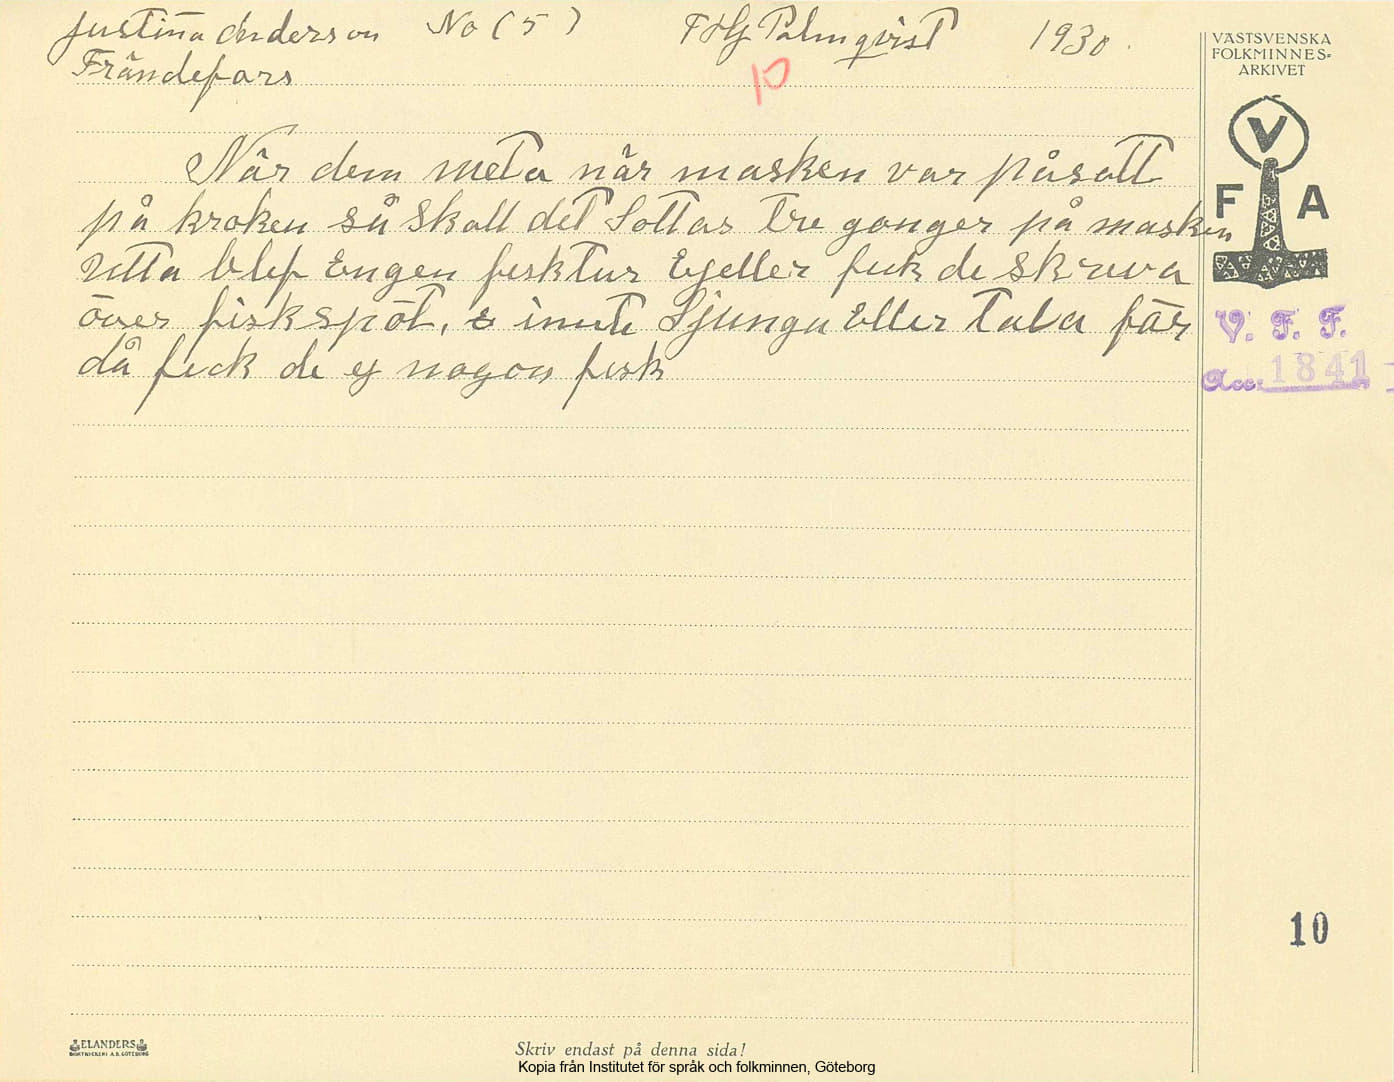 Justina Anderson No (5) T Hj Palmqvist 1930.
Frändefors
10
VÄSTSVENSKA
FOLKMINNES-
ARKIVET
V
F A
När dem meta när masken var påsatt
på kroken så skall det Sottas tre gonger på masken
utta blef Engen fisktur Ejeller feck de skruva
över fiskspöt, inute Sjunga Eller tala får
då feck de ej nogon fisk
V. F. F.
Acc. 1841
10
ELANDERS
BOKTRYCKERI A.B. GÖTEBORG
Skriv endast på denna sida!
Kopia från Institutet för språk och folkminnen, Göteborg